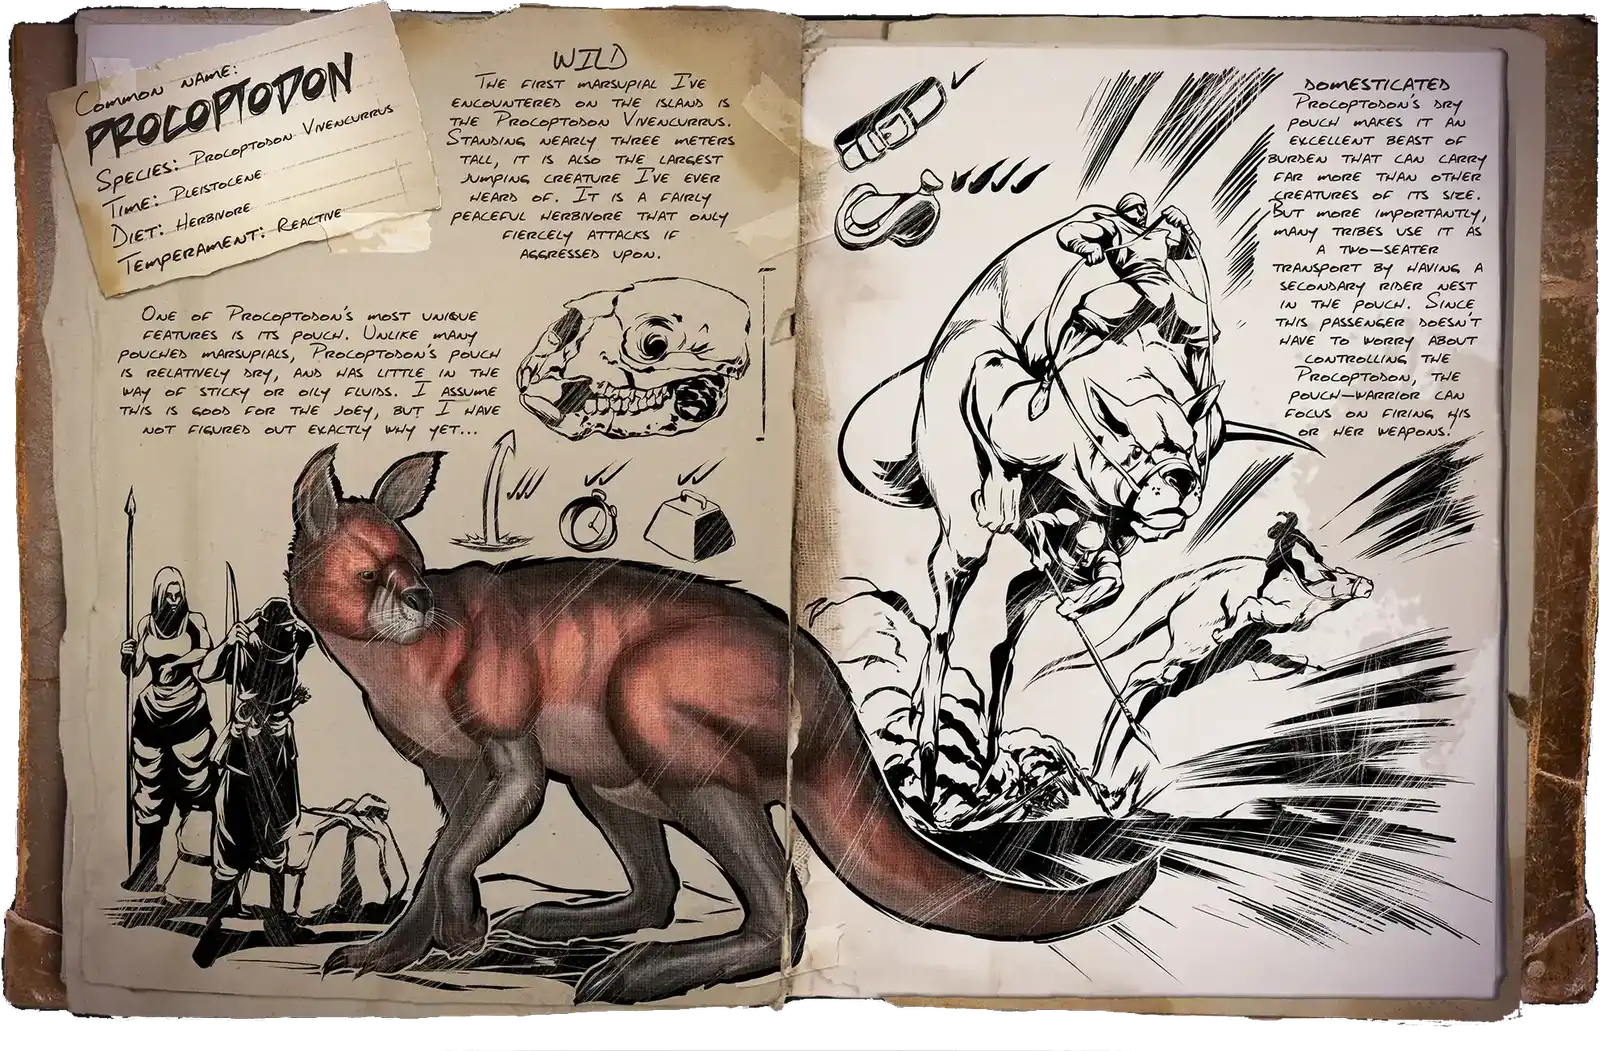 Common name:
PROCOPTODON
Species: Procoptodon Vivencurrus
Time: Pleistocene
Diet: Herbivore
Temperament: Reactive
WILD
The first marsupial I've
encountered on the island is
the Procoptodon Vivencurrus.
Standing nearly three meters
tall, it is also the largest
jumping creature I've ever
heard of. It is a fairly
peaceful herbivore that only
fiercely attacks if
aggressed upon.
One of Procoptodon's most unique
features is its pouch. Unlike many
pouched marsupials, Procoptodon's pouch
is relatively dry, and has little in the
way of sticky or oily fluids. I assume
this is good for the joey, but I have
not figured out exactly why yet...
DOMESTICATED
Procoptodon's dry
pouch makes it an
excellent beast of
burden that can carry
far more than other
creatures of its size.
But more importantly,
many tribes use it as
a two-seater
transport by having a
secondary rider nest
in the pouch. Since
this passenger doesn't
have to worry about
controlling the
Procoptodon, the
pouch-warrior can
focus on firing his
or her weapons!